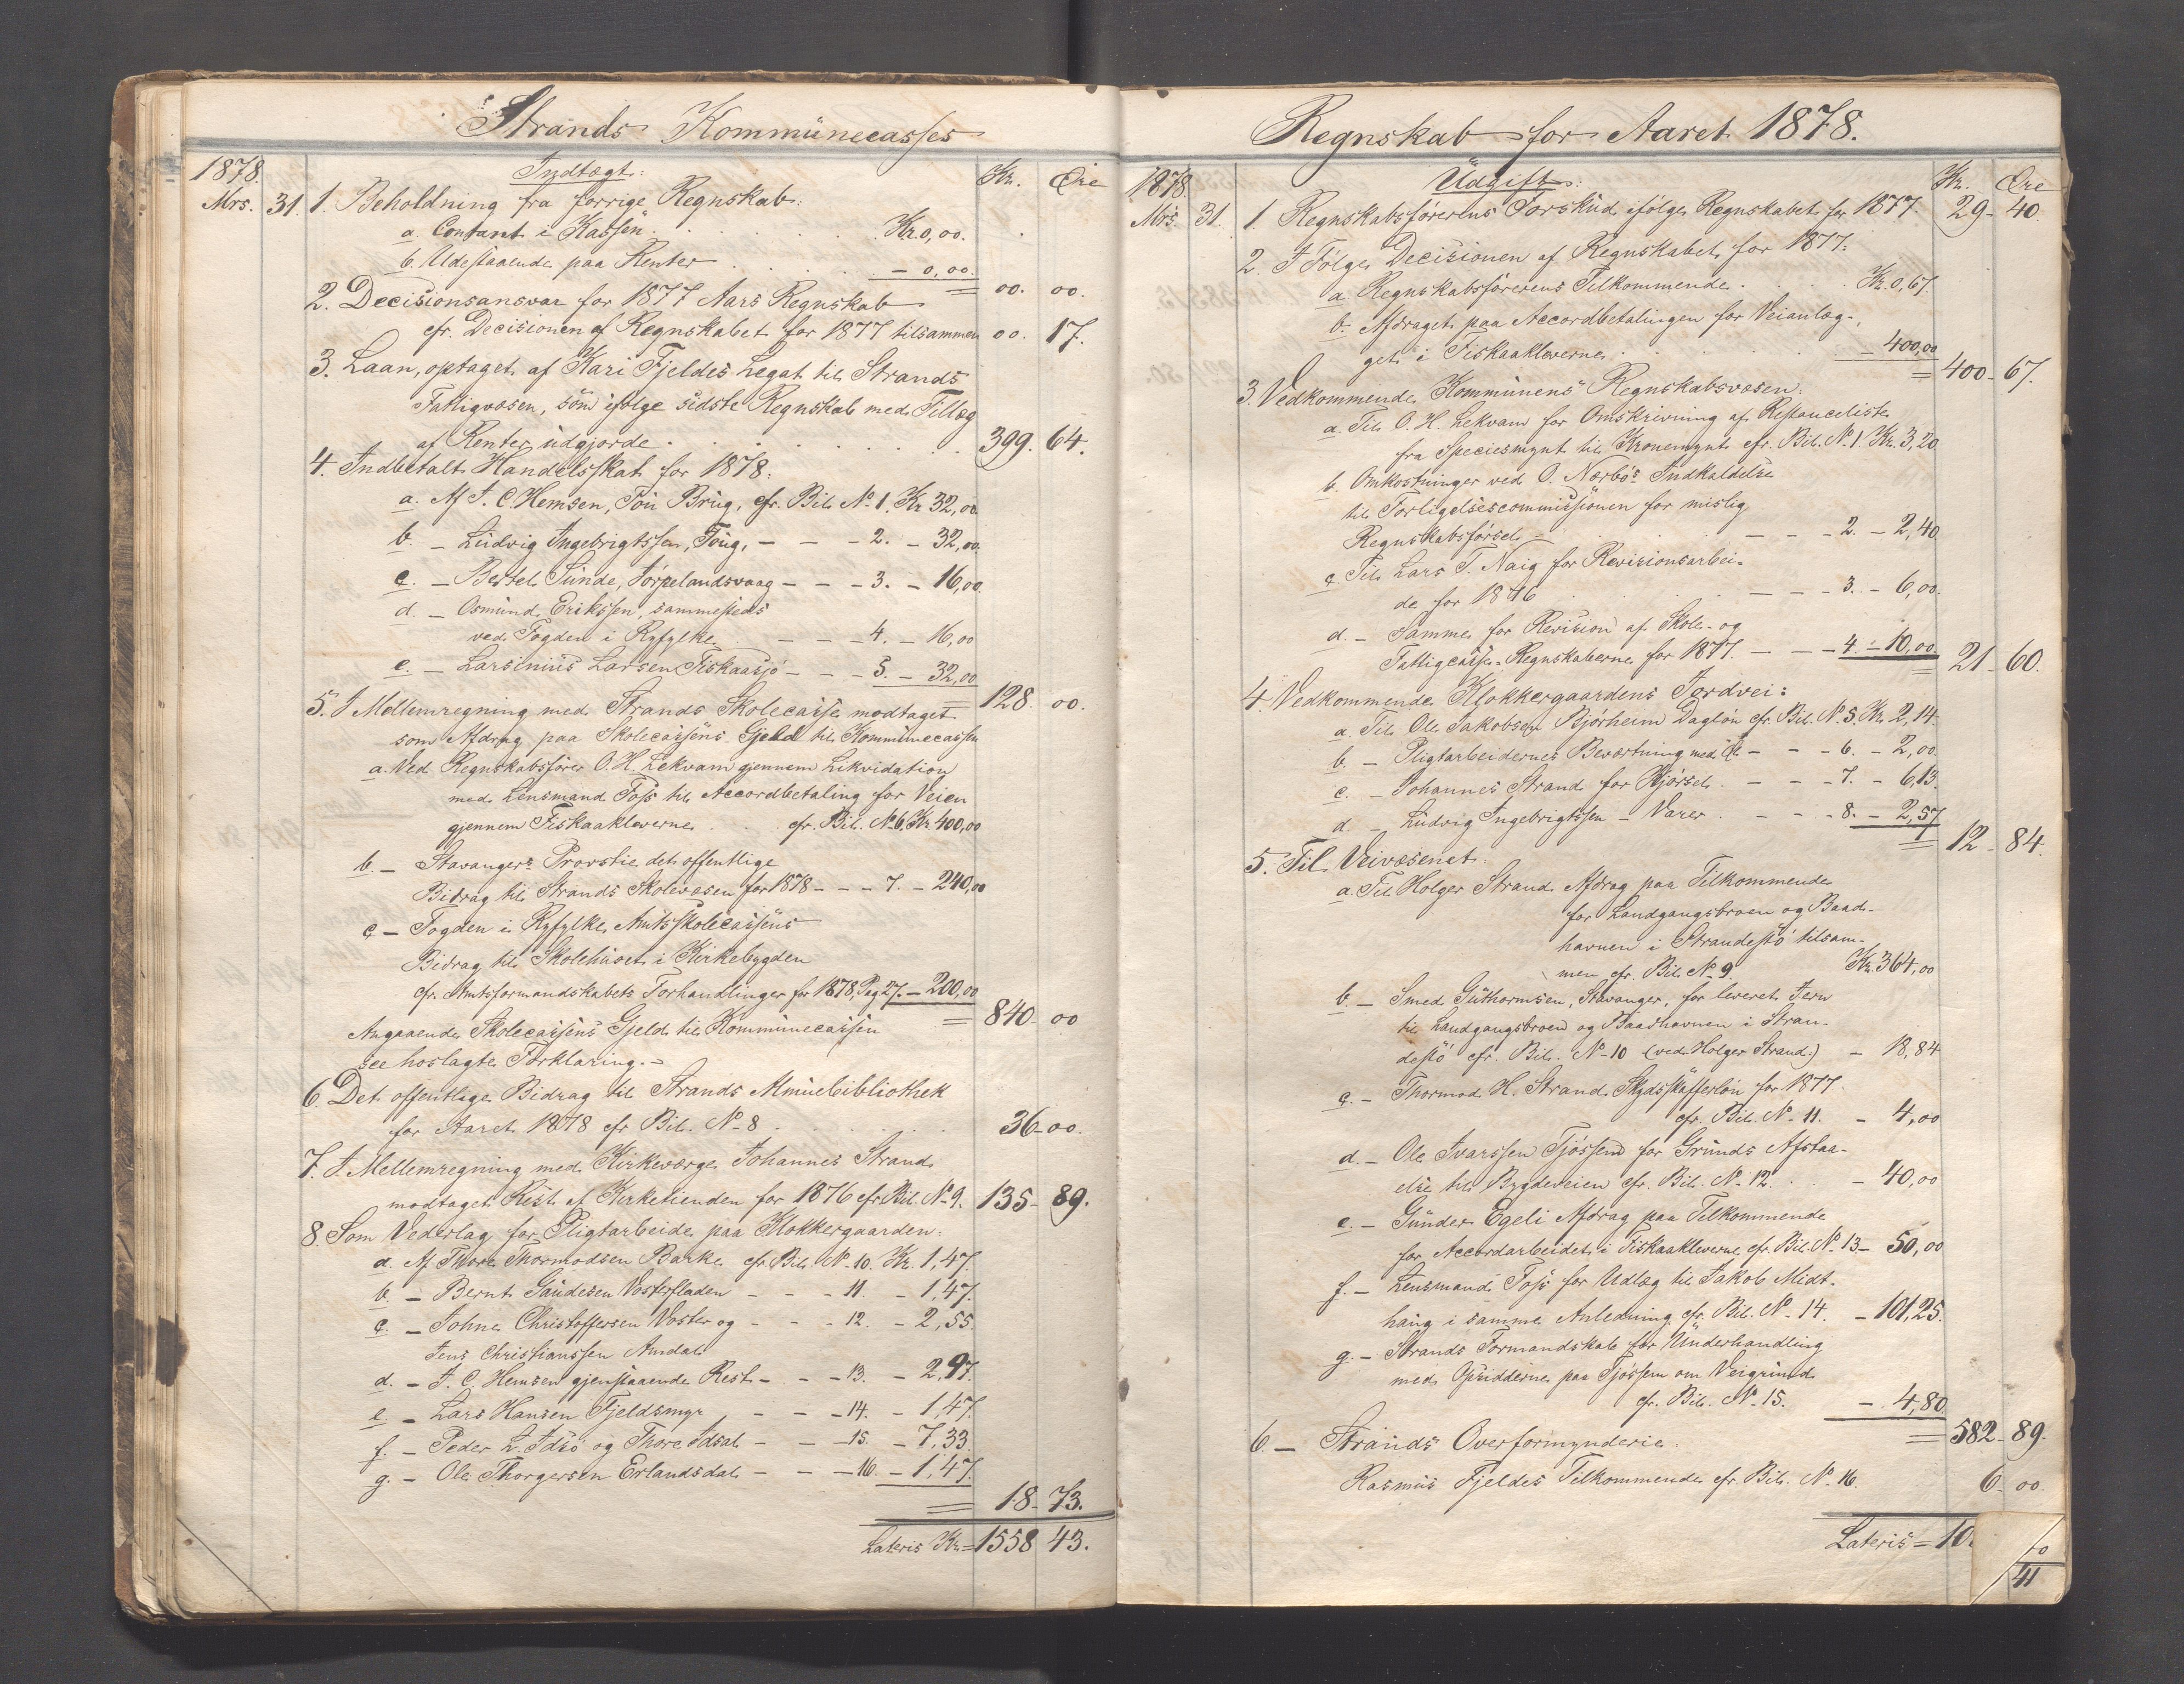 Strands Kommünecasses
1878.
Indtægt:
Kr. Øre
Mrs. 31. 1. Beholdning fra forrige Regnskab:
a. Contant i Kassen . . . Kr. 0,00.
b. Udestaaende paa Renter . . . - 0,00.
= 00. 00.
2. Decisionsansvar for 1877 Aars Regnskab
cfr. Decisionen af Regnskabet for 1877 tilsammen 00. 17.
3. Laan, optaget af Kari Fjeldes Legat til Strands
Fattigvæsen, som ifølge sidste Regnskab med Tillæg
af Renter udgjorde . . . 399. 64.
4. Indbetalt Handelsskat for 1878.
a. Af J. C. Hemsen, Tou Brug, cfr. Bil. No. 1. Kr. 32,00
b. - Ludvig Ingebrigtssen, Toug, - - - 2. - 32,00.
c. - Bertel Sunde, Jørpelandsvaag - - - 3. - 16,00.
d. - Osmund Erikssen, sammesteds
ved Fogden i Ryfylke - - - 4. - 16,00
e. - Larsinius Larsen Fiskaasjø - - - 5. - 32,00
= 128 00.
5. I Mellemregning med Strands Skolecasse modtaget
som Afdrag paa Skolecassens Gjeld til Kommünecassen
a. Ved Regnskabsfører O. H. Lekvam gjennem Likvidation
med Lensmand Foss til Accordbetaling for Veien
gjennem Fiskaaklevene . . . cfr. Bil. No. 6. Kr. 400,00
b. - Stavangers Provstie det offentlige
Bidrag til Strands Skolevæsen for 1878 - - - 7. - 240,00
c. - Fogden i Ryfylke, Amtsskolecassens
Bidrag til Skolehuset i Kirkebygden
cfr. Amtsformandskabets Forhandlinger for 1878, Pag 27. - 200,00
= 840 00
Angaaende Skolecassens Gjeld til Kommünecassen
see hoslagte Forklaring. -
6. Det offentlige Bidrag til Strands Almuebibliothek
for Aaret 1878 cfr. Bil. No. 8 . . . 36 - 00.
7. I Mellemregning med Kirkeværge Johannes Strand
modtaget Rest af Kirketienden for 1876 cfr. Bil. No. 9. 135 - 89.
8. Som Vederlag for Pligtarbeide paa Klokkergaarden:
a. Af Thore Thormodsen Barke cfr. Bil. No. 10. Kr. 1,47.
b. - Bernt Gaudesen Vosterfladen - - - 11. - 1,47.
c. - Johne Christoffersen Voster og - - - 12. - 2,55.
Jens Christianssen Amdal
d. - J. C. Hemsen gjenstaaende Rest - - - 13. - 2,97.
e. - Lars Hansen Fjeldsmyr - - - 14. - 1,47.
f. - Peder L. Idsö og Thore Idsal - - - 15. - 7,33.
g. - Ole Thorgersen Erlandsdal - - - 16. - 1,47.
= 18 - 73.
Lateris Kr. = 1558 43.
Regnskab for Aaret 1878.
1878.
Udgift:
Kr. Øre
Mrs. 31. 1. Regnskabsførerens Forskud ifølge Regnskabet for 1877. 29 - 40.
2. I Følge Decisionen af Regnskabet for 1877:
a. Regnskabsførerens Tilkommende . . . Kr. 0,67.
b. Afdraget paa Accordbetalingen for Veianlæg-
get i Fiskaaklevene . . . - 400,00
= 400 - 67.
3. Vedkommende Kommünens Regnskabsvæsen:
a. Til O. H. Lekvam for Omskrivning af Restanceliste
fra Speciesmynt til Kronemynt cfr. Bil. No. 1. Kr. 3,20
b. Omkostninger ved O. Nærbø's Indkaldelse
til Forligelsescommissionen for mislig
Regnskabsførsel . . . - - - 2. - 2,40
c. Til Lars T. Naig for Revisionsarbei-
de for 1876 . . . - - - 3. - 6,00.
d. - Samme for Revision af Skole- og
Fattigcasse-Regnskaberne for 1877. - - - 4. - 10,00.
= 21 - 60.
4. Vedkommende Klokkergaardens Jordvei:
a. Til Ole Jakobsen Bjørheim Dagløn cfr. Bil. No. 5. Kr. 2,14.
b. - Pligtarbeidernes Beværtning med Øl - - - 6. - 2,00.
c. - Johannes Strand for Kjørsel . - - - 7. - 6,13.
d. - Ludvig Ingebrigtssen - Varer . - - - 8. - 2,57
= 12 - 84.
5. Til Veivæsenet:
a. Til Holger Strand Afdrag paa Tilkommende
for Landgangsbroen og Baad-
havnen i Strandestø tilsam-
men cfr. Bil. No. 9. Kr. 364,00
b. - Smed Guthormsen, Stavanger, for leveret Jern
til Landgangsbroen og Baadhavnen i Stran-
destø cfr. Bil. No. 10 (ved Holger Strand.) - 18,84
c. - Thormod H. Strand, Skydsskafferløn for 1877.
cfr. Bil. No. 11. - 4,00
d. - Ole Ivarssen Tjøssem for Grunds Afstaa-
else til Bygdeveien cfr. Bil. No. 12. . . - 40,00
e. - Gunder Egeli Afdrag paa Tilkommende
for Accordarbeidet i Fiskaaklevene cfr. Bil. No. 13 - 50,00
f. - Lensmand Foss for Udlæg til Jakob Midt-
haug i samme Anledning cfr. Bil. No. 14. - 101,25.
g. - Strands Formandskab for Underhandling
med Opsidderne paa Tjøssem om Veigrund
cfr. Bil. No. 15. - 4,80
= 582 - 89.
6. - Strands Overformynderie:
Rasmus Fjeldes Tilkommende cfr. Bil. No. 16. 6 - 00
Lateris = 10
40
41